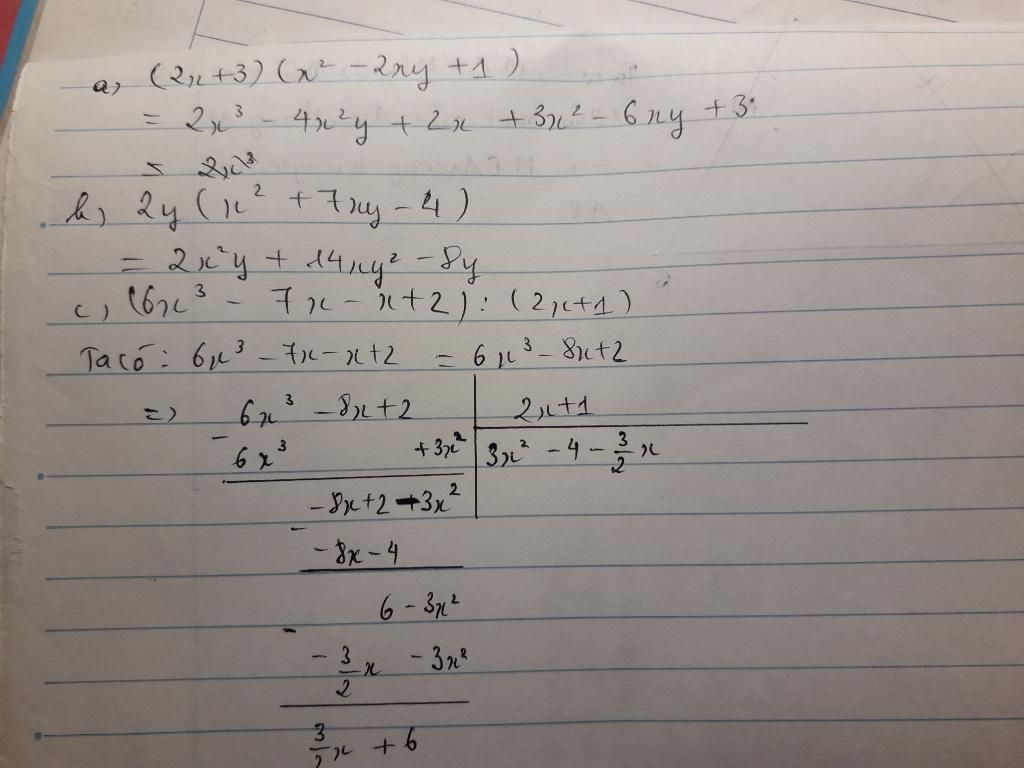 a, (2x+3)(x² - 2xy + 1)
= 2x³ - 4x²y + 2x + 3x² - 6xy + 3
= 2x³
b, 2y(x² + 7xy - 4)
= 2x²y + 14xy² - 8y
c, (6x³ - 7x - x + 2) : (2x+1)
Ta có: 6x³ - 7x - x + 2 = 6x³ - 8x + 2
=> 6x³ - 8x + 2 2x+1
- 6x³ + 3x² 3x² - 4 - 3/2 x
- 8x + 2 - 3x²
- - 8x - 4
6 - 3x²
- - 3/2 x - 3x²
3/2 x + 6